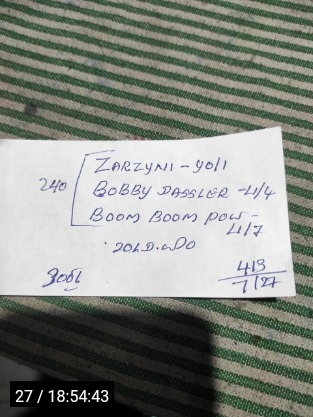 240
ZARZYNI - 40/1
BOBBY DASSLER - 4/4
BOOM BOOM POW -
4/7
413
1/27
27 / 18:54:43